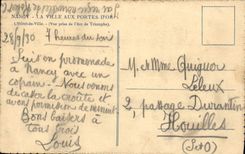 NANCY - LA VILLE AUX PORTES D'OR
L'Hôtel-de-Ville - (Vue prise de l'Arc de Triomphe).
28/9/30 7 heures du soir
Suis en promenade
à Nancy avec un
copain - Nous venons
de casser la croûte et
avons permission de minuit.
Bons baisers à
tous trois
Louis
M. et Mme Quiguer
Leleux
2, passage Durantin
Houilles
(S&O)